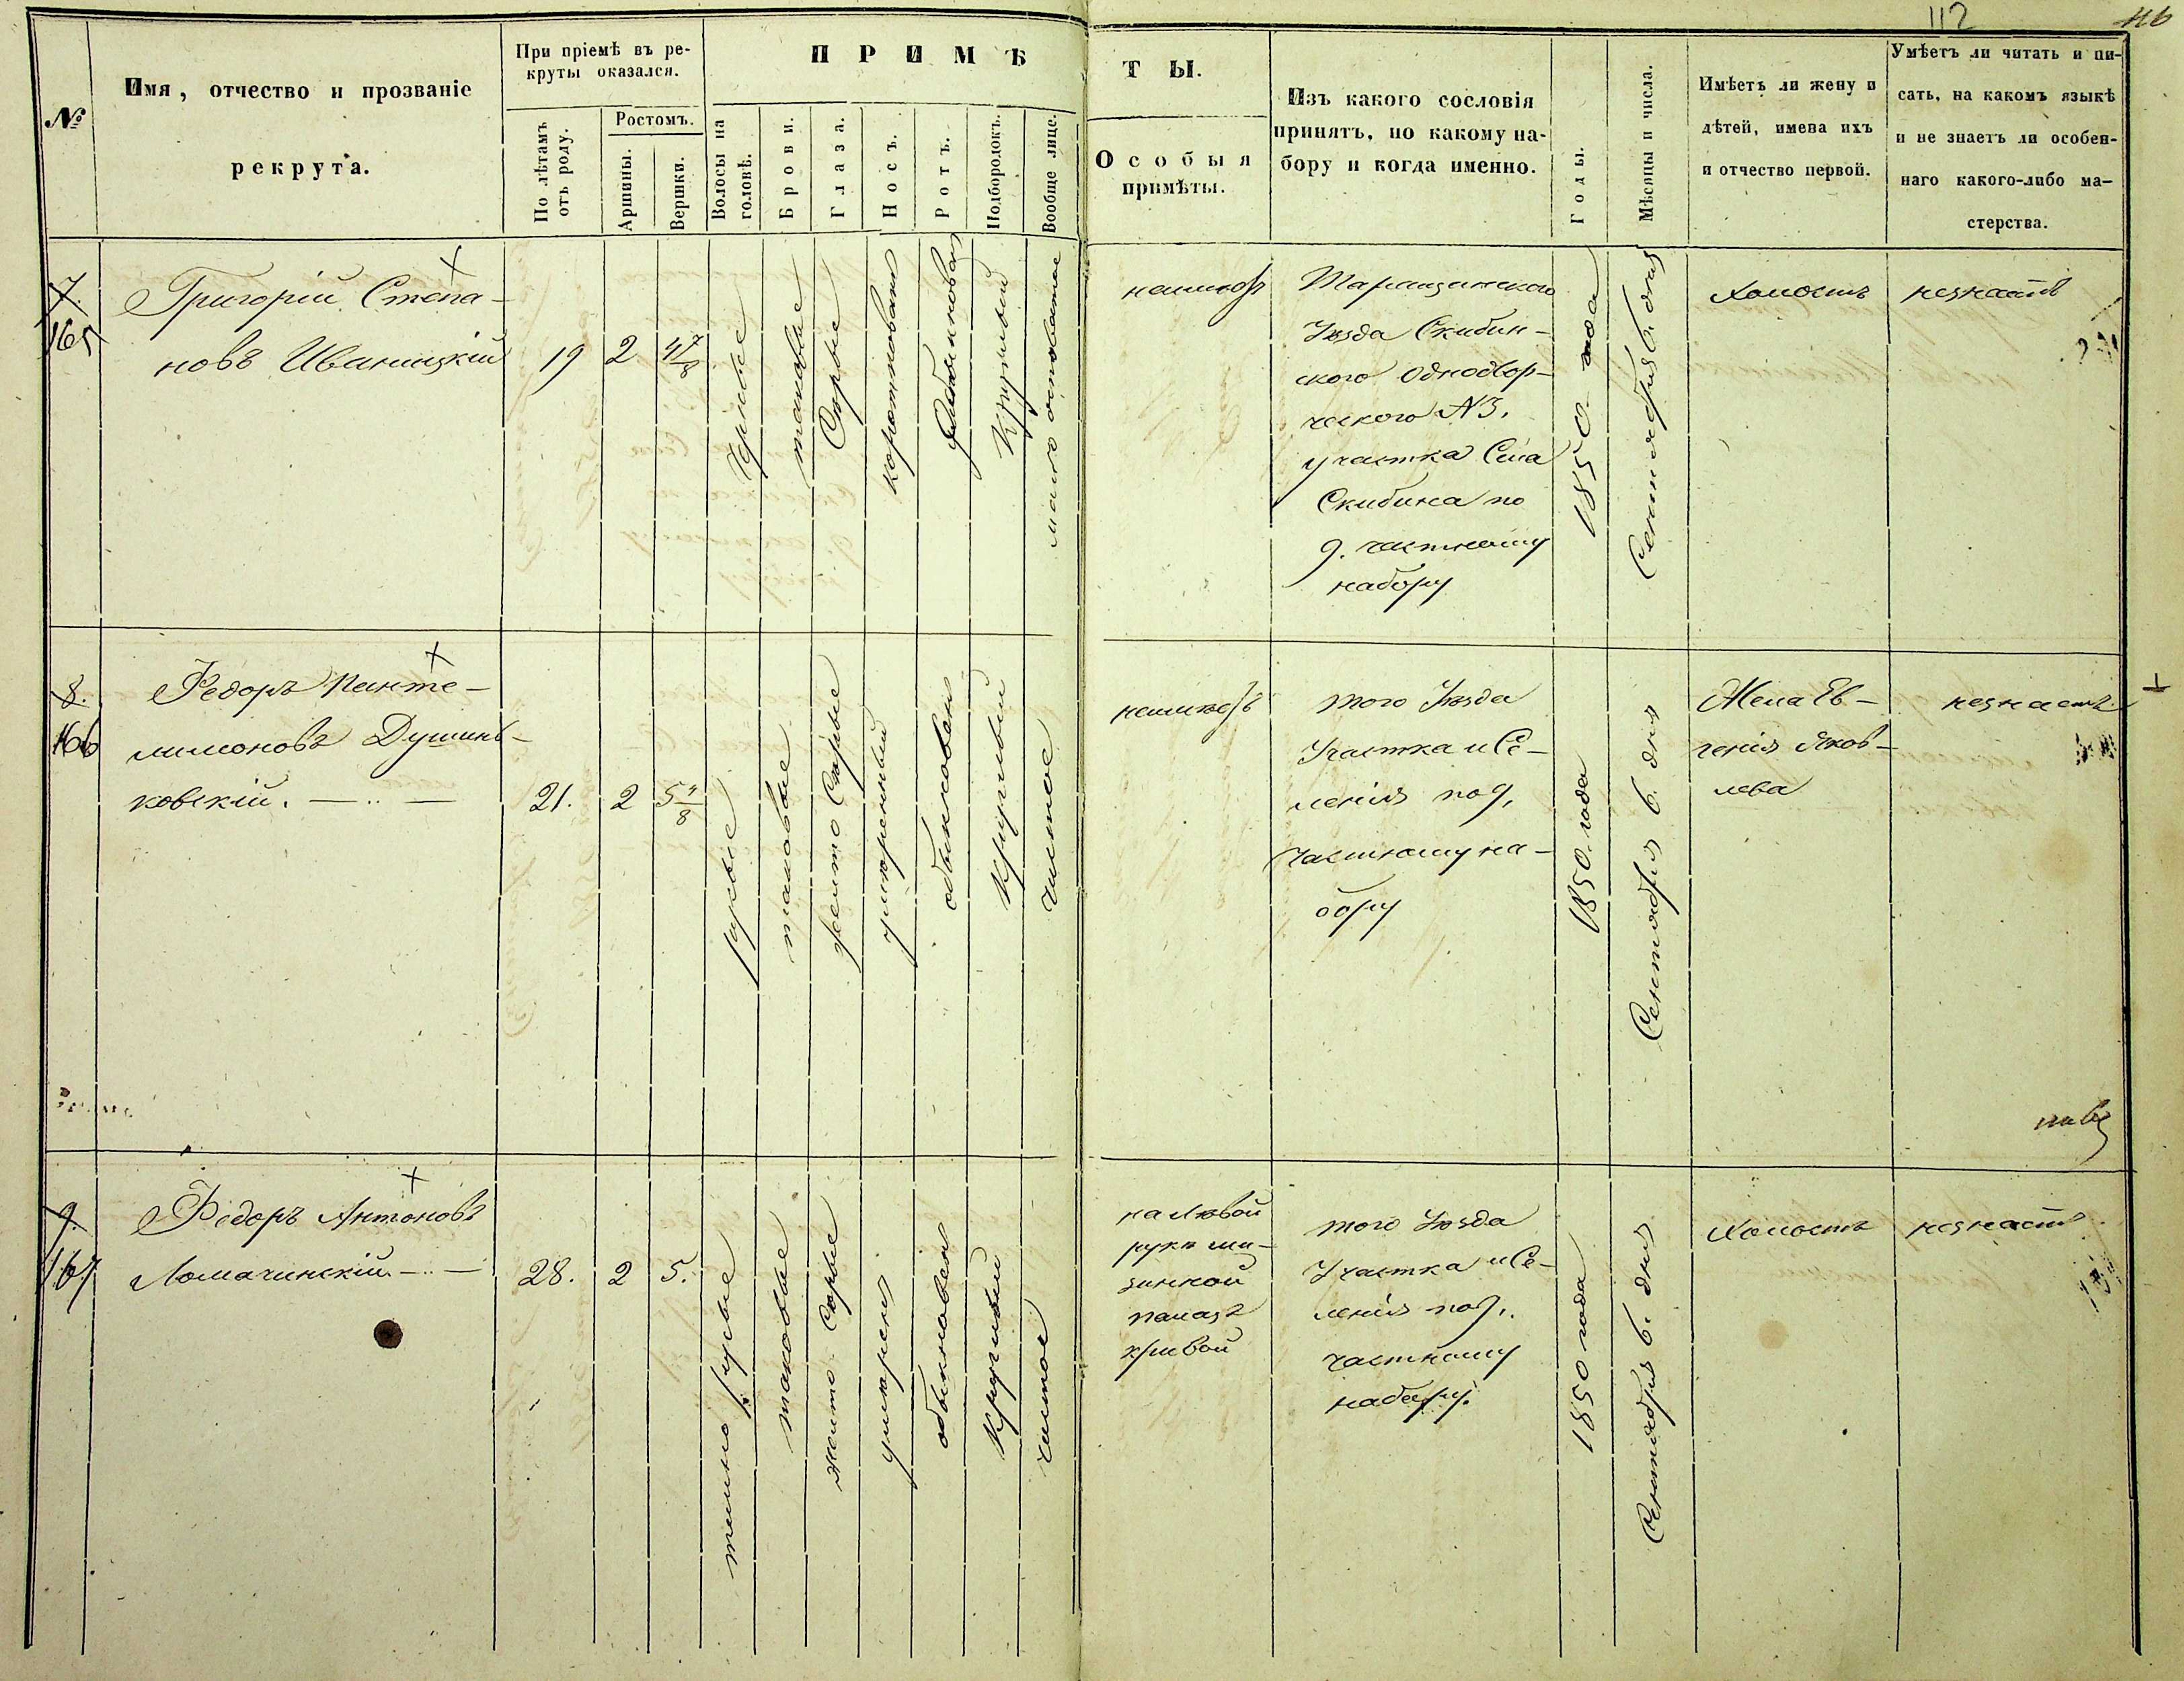 112
116
№
Имя, отчество и прозваніе
рекрута.
При пріемѣ въ ре-
круты оказался.
По лѣтамъ
отъ роду.
Ростомъ.
Аршины.
Вершки.
ПРИМѢ
ТЫ.
Волосы на
головѣ.
Брови.
Глаза.
Носъ.
Ротъ.
Подбородокъ.
Вообще лице.
Особыя
примѣты.
Изъ какого сословія
принятъ, по какому на-
бору и когда именно.
Годы.
Мѣсяцы и числа.
Имѣетъ ли жену и
дѣтей, имена ихъ
и отчество первой.
Умѣетъ ли читать и пи-
сать, на какомъ языкѣ
и не знаетъ ли особен-
наго какого-либо ма-
стерства.
7.
165
Григорій Степа-
новъ Иваницкій
19
2
4 7/8
таковые
Сѣрые
коротковатъ
обыкновен
Круглый
мало осповатое
неимѣетъ
Таращанскаго
Уѣзда Скибин-
ского Однодвор-
ческого №3.
участка Села
Скибина по
9. частному
набору
1850 года
Сентября 6. дня
Холостъ
незнаетъ
8.
166
Федоръ Панте-
лимоновъ Душинь-
ковскій.
21.
2
5 4/8
русые
таковые
желто Сѣрые
умѣренный
обыкновен
Круглый
чистое
неимѣетъ
того Уѣзда
Участка и Се-
ленія по 9,
частному на-
бору
1850. года
Сентября 6. дня
Жена Ев-
генія Яков-
лева
незнаетъ
9.
167
Федоръ Антоновъ
Ломачинскій
28.
2
5.
темно русые
таковые
желто Сѣрые
умѣренъ
обыкновен
Круглый
чистое
на лѣвой
рукѣ ми-
зинной
палецъ
кривой
того Уѣзда
Участка и Се-
ленія по 9,
частному
набору.
1850 года
Сентября 6. дня
Холостъ
незнаетъ